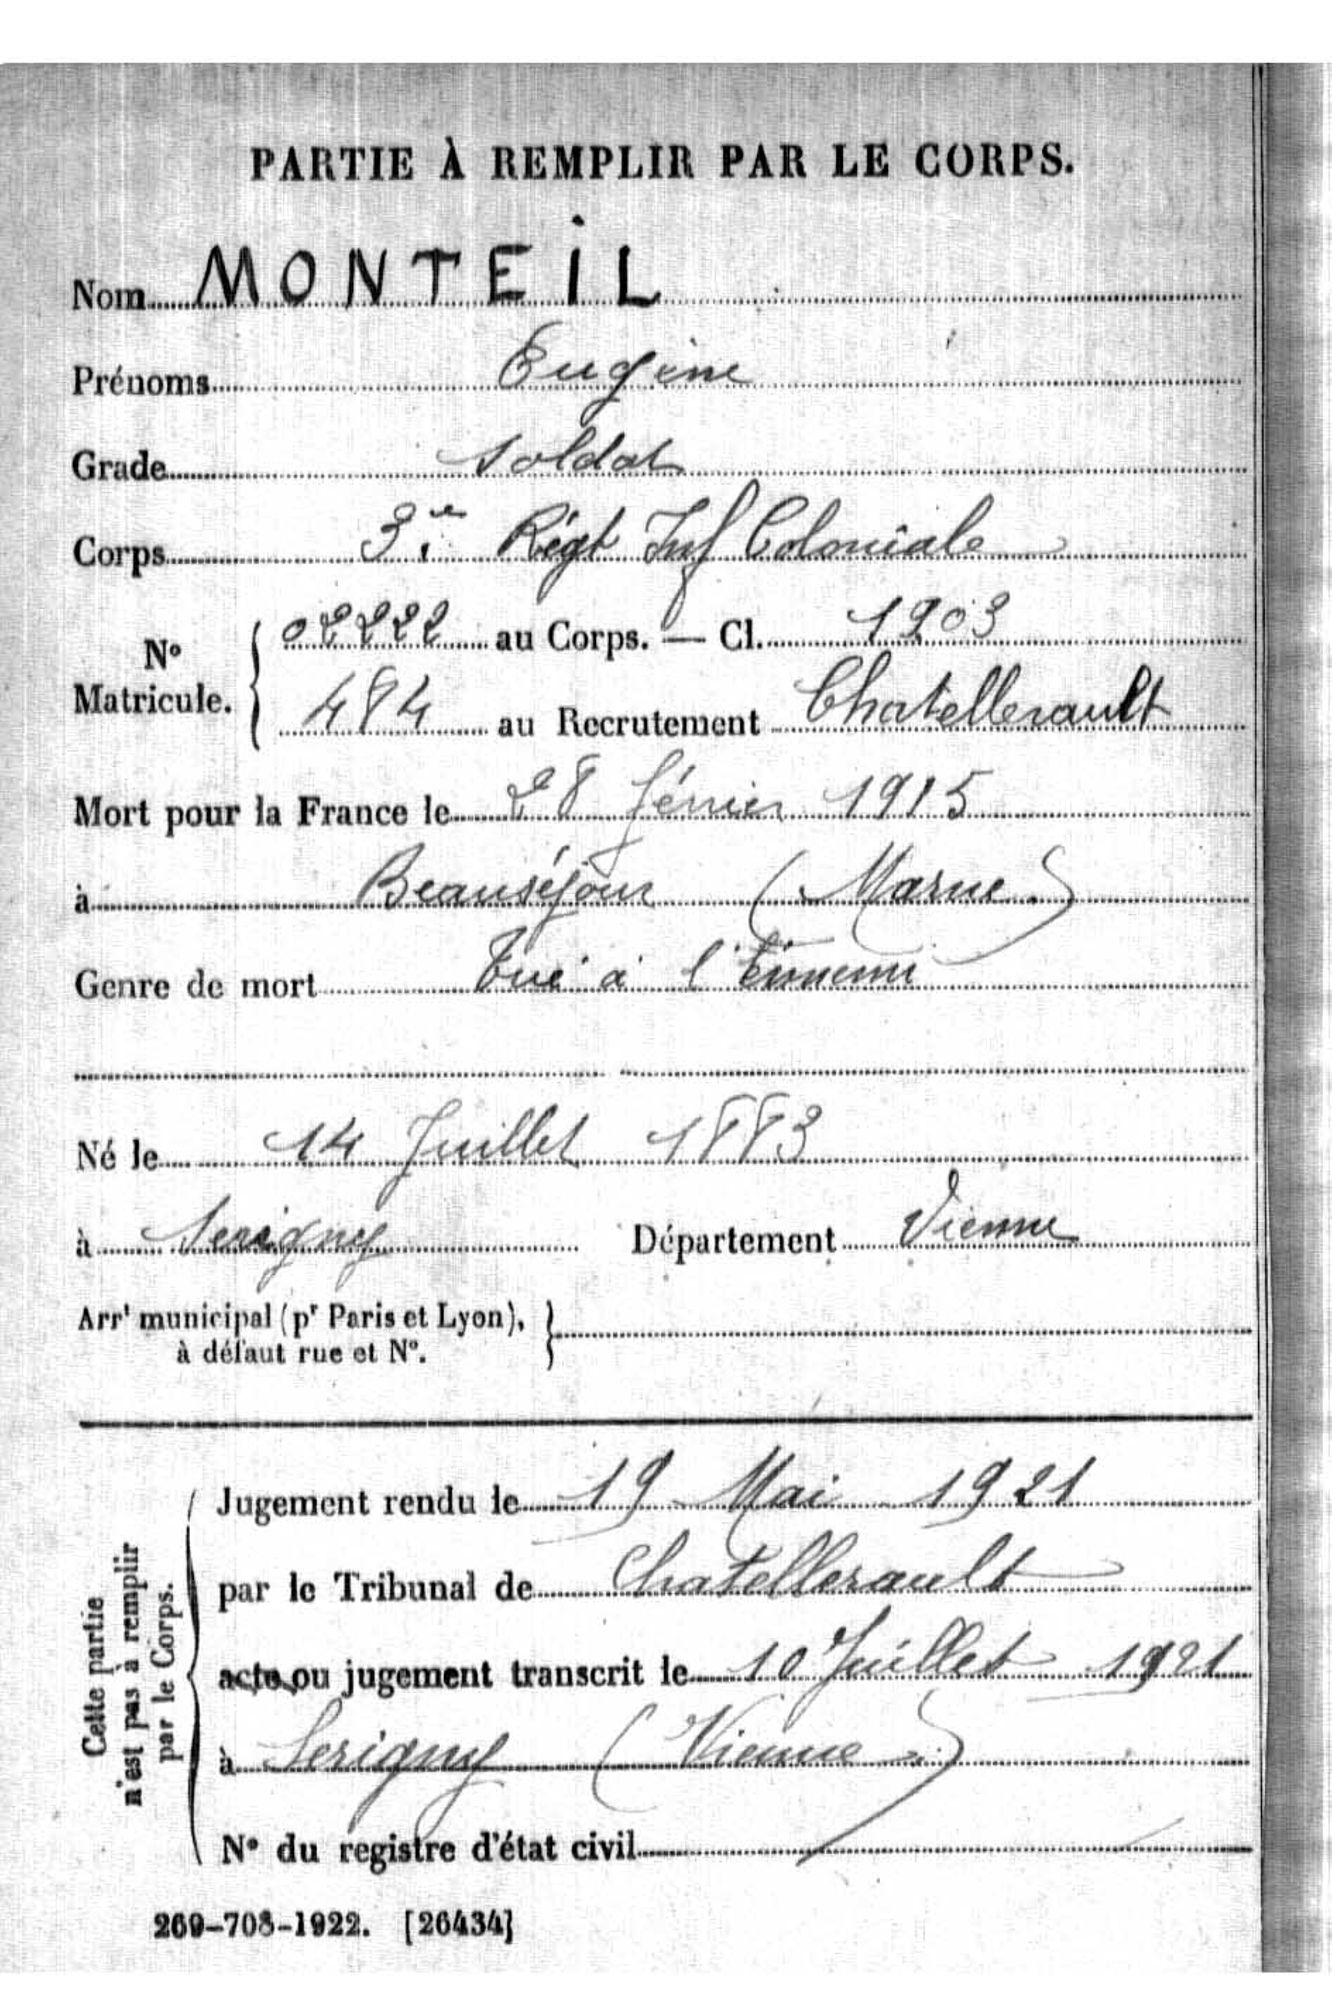 PARTIE À REMPLIR PAR LE CORPS.
Nom MONTEIL
Prénoms Eugène
Grade soldat
Corps 3e Régt Inf Coloniale
N° Matricule. { 02222 au Corps. — Cl. 1903
484 au Recrutement Chatellerault
Mort pour la France le 28 février 1915
à Beauséjour (Marne)
Genre de mort Tué à l'Ennemi
Né le 14 Juillet 1883
à Serigny Département Vienne
Arrt municipal (pr Paris et Lyon), }
à défaut rue et N°.
Cette partie
n'est pas à remplir
par le Corps.
Jugement rendu le 19 Mai 1921
par le Tribunal de Chatellerault
acte ou jugement transcrit le 10 Juillet 1921
à Serigny (Vienne)
N° du registre d'état civil
269-708-1922. [26434]